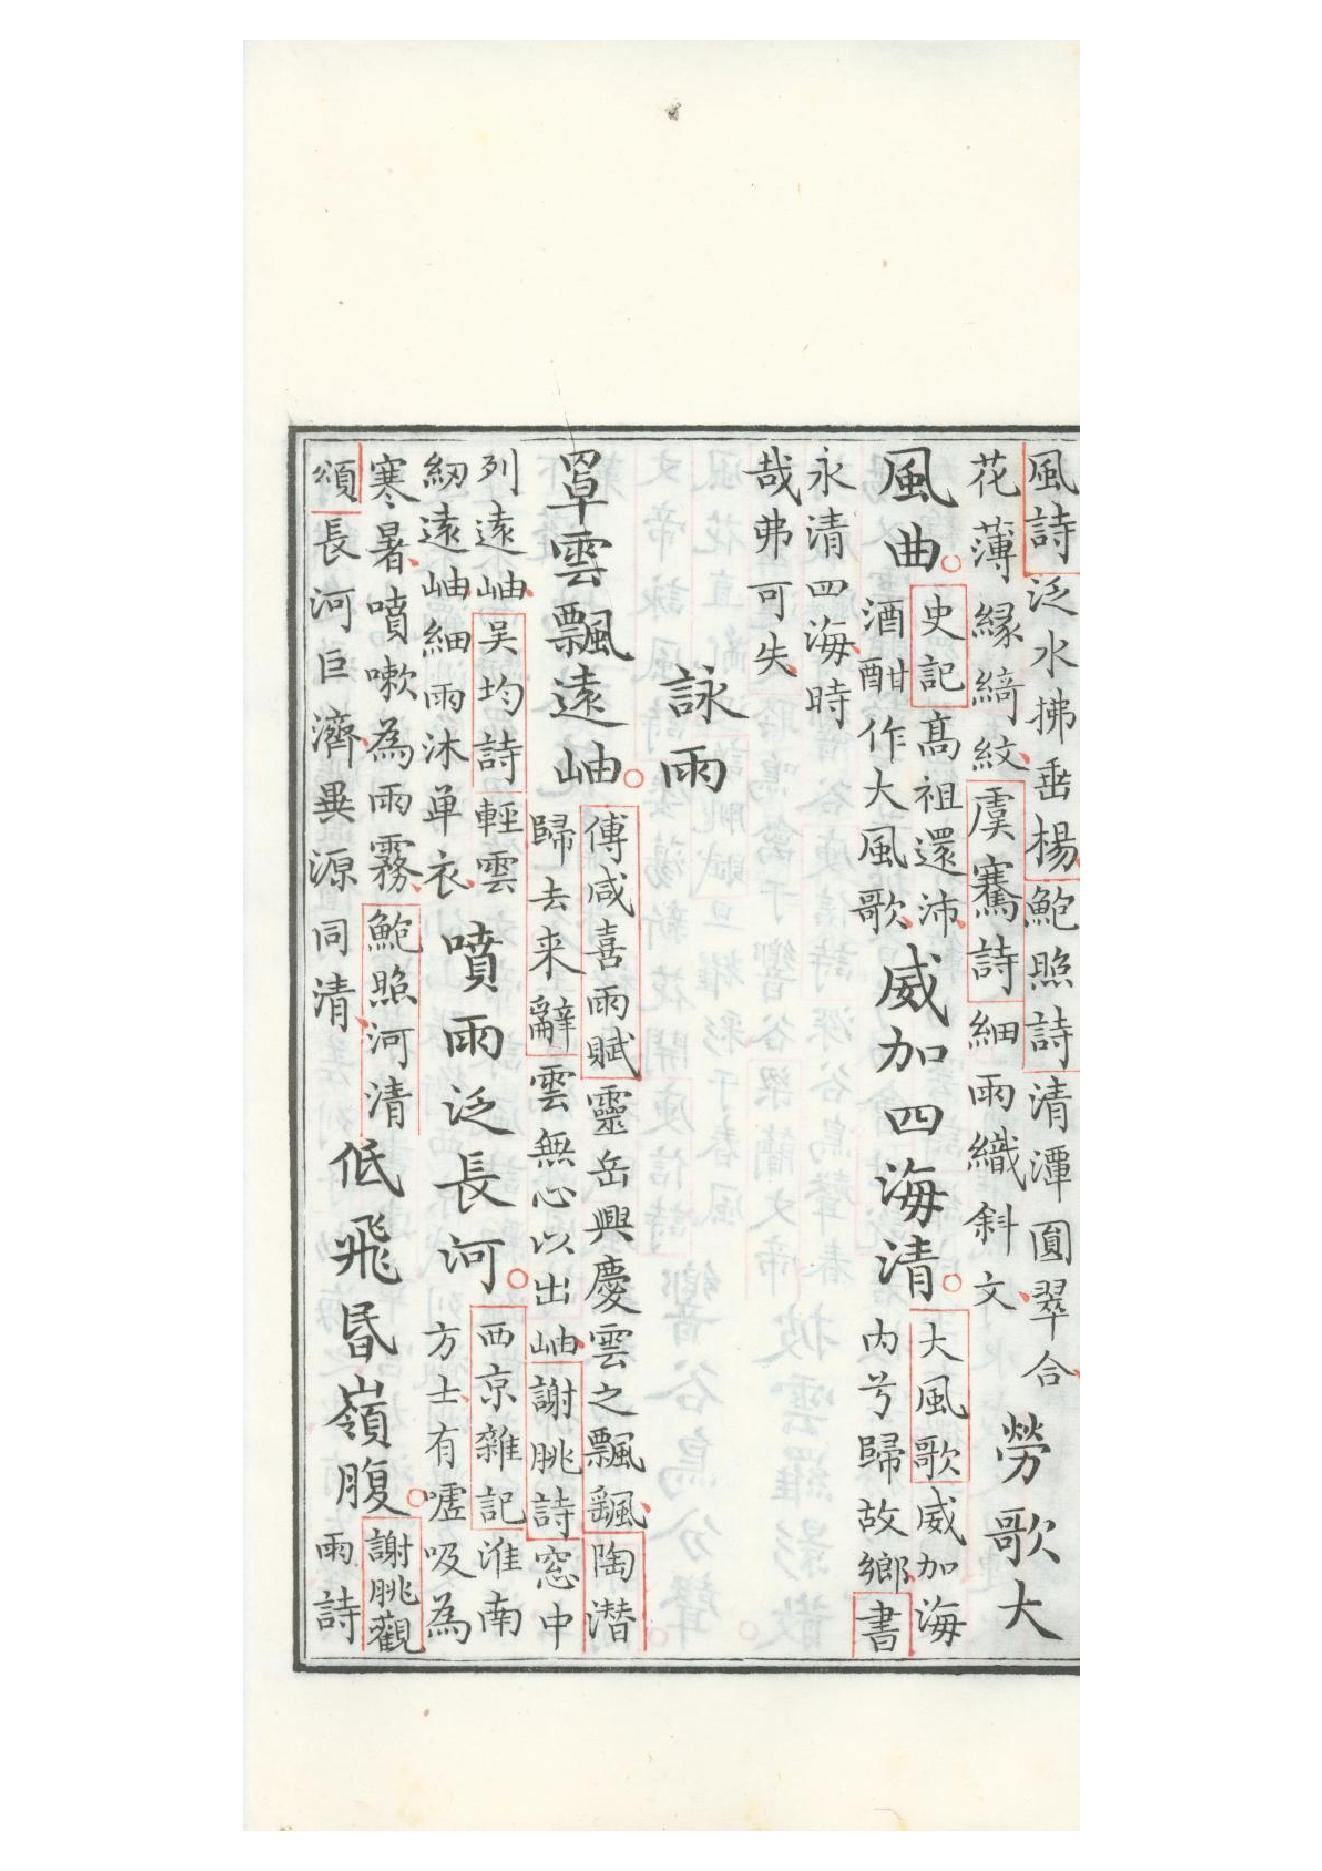 風詩泛水拂垂楊鮑照詩清潭圓翠合
花薄緣綺紋虞騫詩細雨織斜文
勞歌大
風曲
史記高祖還沛
酒酣作大風歌
威加四海清
大風歌威加海
內兮歸故鄉書
永清四海時
哉弗可失
詠雨
罩雲飄遠岫
傅咸喜雨賦靈岳興慶雲之飄颻陶潛
歸去来辭雲無心以出岫謝朓詩窓中
列遠岫吴均詩輕雲
紉遠岫細雨沐单衣
噴雨泛長河
西京雜記淮南
方士有嘘吸為
寒暑噴嗽為雨霧鮑照河清
頌長河巨濟異源同清
低飛昏嶺腹
謝朓觀
雨詩